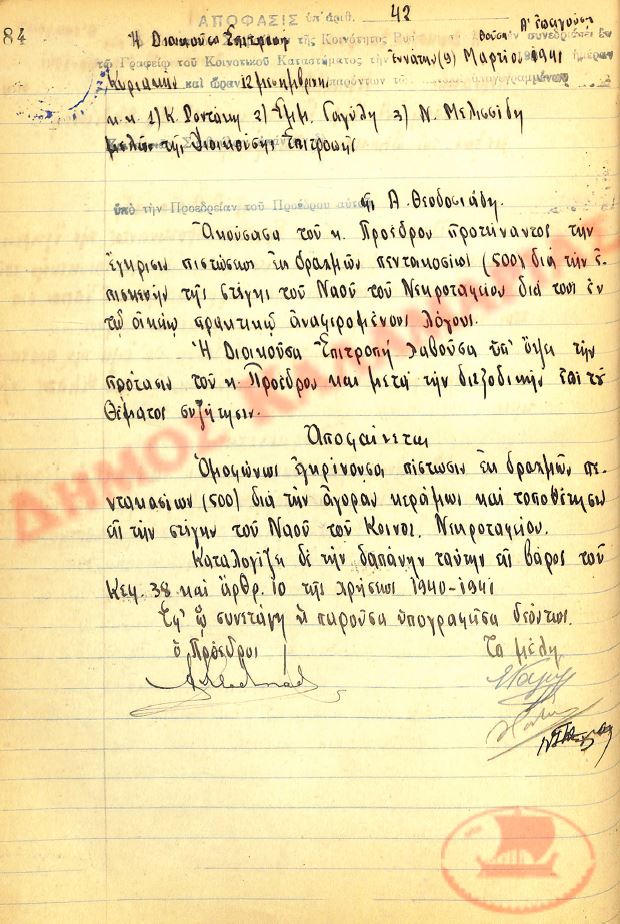 84
ΑΠΟΦΑΣΙΣ ὑπ' ἀριθ. 42
Ἡ Διοικοῦσα Ἐπιτροπή τῆς Κοινότητος
τῷ Γραφείῳ τοῦ Κοινοτικοῦ Καταστήματος τὴν ἐννάτην (9) Μαρτίου 1941 ἡμέραν
Κυριακὴν καὶ ὥραν 12 μεσημβρινὴν
κ.κ. 1) Κ. Ροντάκη 2) Σημ. Γαγύλη 3) Ν. Μελισσίδη
μελῶν τῆς Διοικούσης Ἐπιτροπῆς
ὑπὸ τὴν Προεδρείαν τοῦ Προέδρου αὐτῆς Α. Θεοδοσιάδη.
Ἀκούσασα τοῦ κ. Προέδρου προτείναντος τὴν
ἔγκρισιν πιστώσεως ἐκ δραχμῶν πεντακοσίων (500) διὰ τὴν ἐ-
πισκευὴν τῆς στέγης τοῦ Ναοῦ τοῦ Νεκροταφείου διὰ τους ἐν
τῷ οἰκείῳ πρακτικῷ ἀναφερομένους λόγους.
Ἡ Διοικοῦσα Ἐπιτροπή λαβοῦσα ὑπ' ὄψει τὴν
πρότασιν τοῦ κ. Προέδρου καὶ μετὰ τὴν διεξοδικὴν ἐπὶ τοῦ
θέματος συζήτησιν.
Ἀποφαίνεται
Ὁμοφώνως ἐγκρίνουσα πίστωσιν ἐκ δραχμῶν πε-
ντακοσίων (500) διὰ τὴν ἀγορὰν κεράμων καὶ τοποθέτησιν
εἰς τὴν στέγην τοῦ Ναοῦ τοῦ Κοινοτ. Νεκροταφείου.
Καταλογίζει δὲ τὴν δαπάνην ταύτην εἰς βάρος τοῦ
Κεφ. 38 καὶ ἄρθρ. 10 τῆς χρήσεως 1940-1941
Ἐφ' ᾧ συνετάγη ἡ παροῦσα ὑπογραφεῖσα δεόντως.
ὁ Πρόεδρος Τα μέλη
ΔΗΜΟΣ ΚΑΛΑΜΑΡΙΑΣ